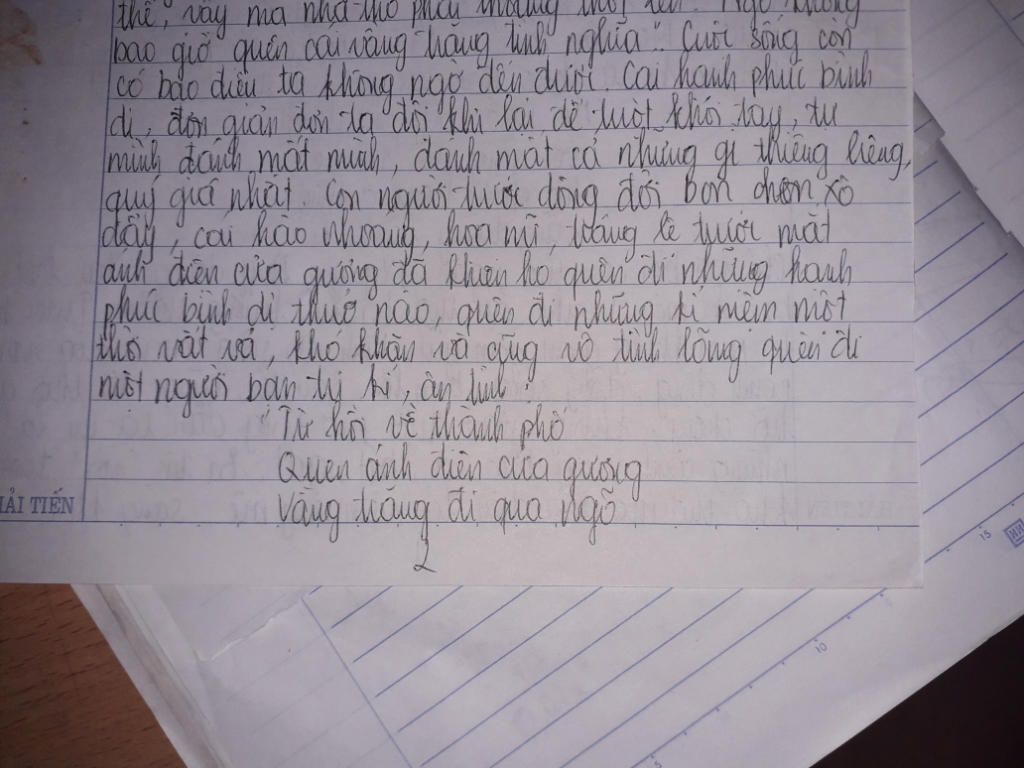 thế, vậy mà nhà thơ phải thốt lên "Ngỡ không
bao giờ quên cái vầng trăng tình nghĩa". Cuộc sống còn
có bao điều ta không ngờ đến được. Cái hạnh phúc bình
dị, đơn giản đơn ta đôi khi lại để tuột khỏi tay, tự
mình đánh mất mình, đánh mất cả những gì thiêng liêng,
quý giá nhất. Con người trước dòng đời bon chen xô
đẩy, cái hào nhoáng, hoa mĩ, tráng lệ trước mắt
ánh điện cửa gương đã khiến họ quên đi những hạnh
phúc bình dị thuở nào, quên đi những kỉ niệm một
thời vất vả, khó khăn và cũng vô tình lãng quên đi
một người bạn tri kỉ, ân tình:
"Từ hồi về thành phố
Quen ánh điện cửa gương
Vầng trăng đi qua ngõ
2
ẢI TIẾN
15
10
5